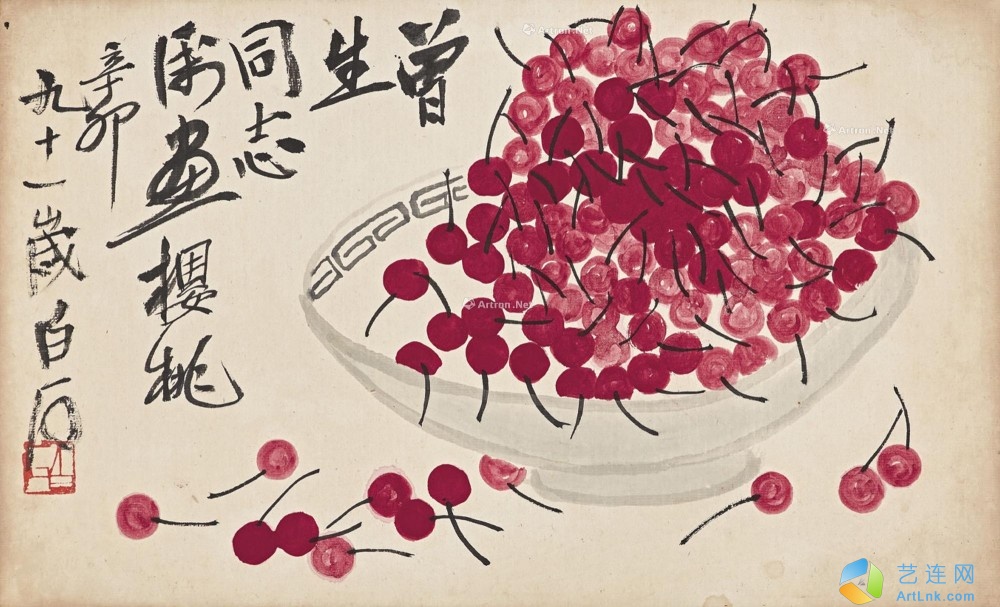 曾生
同志
畫櫻桃
辛卯
九十一歲白石
Artron.Net
Artron.Net
Artron.Net
艺连网
ArtLnk.com